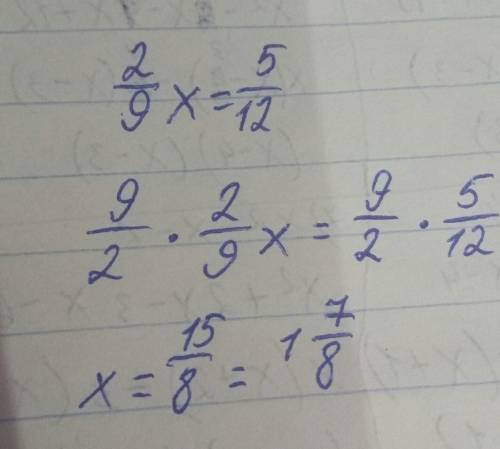 2/9 x = 5/12
9/2 · 2/9 x = 9/2 · 5/12
x = 15/8 = 1 7/8